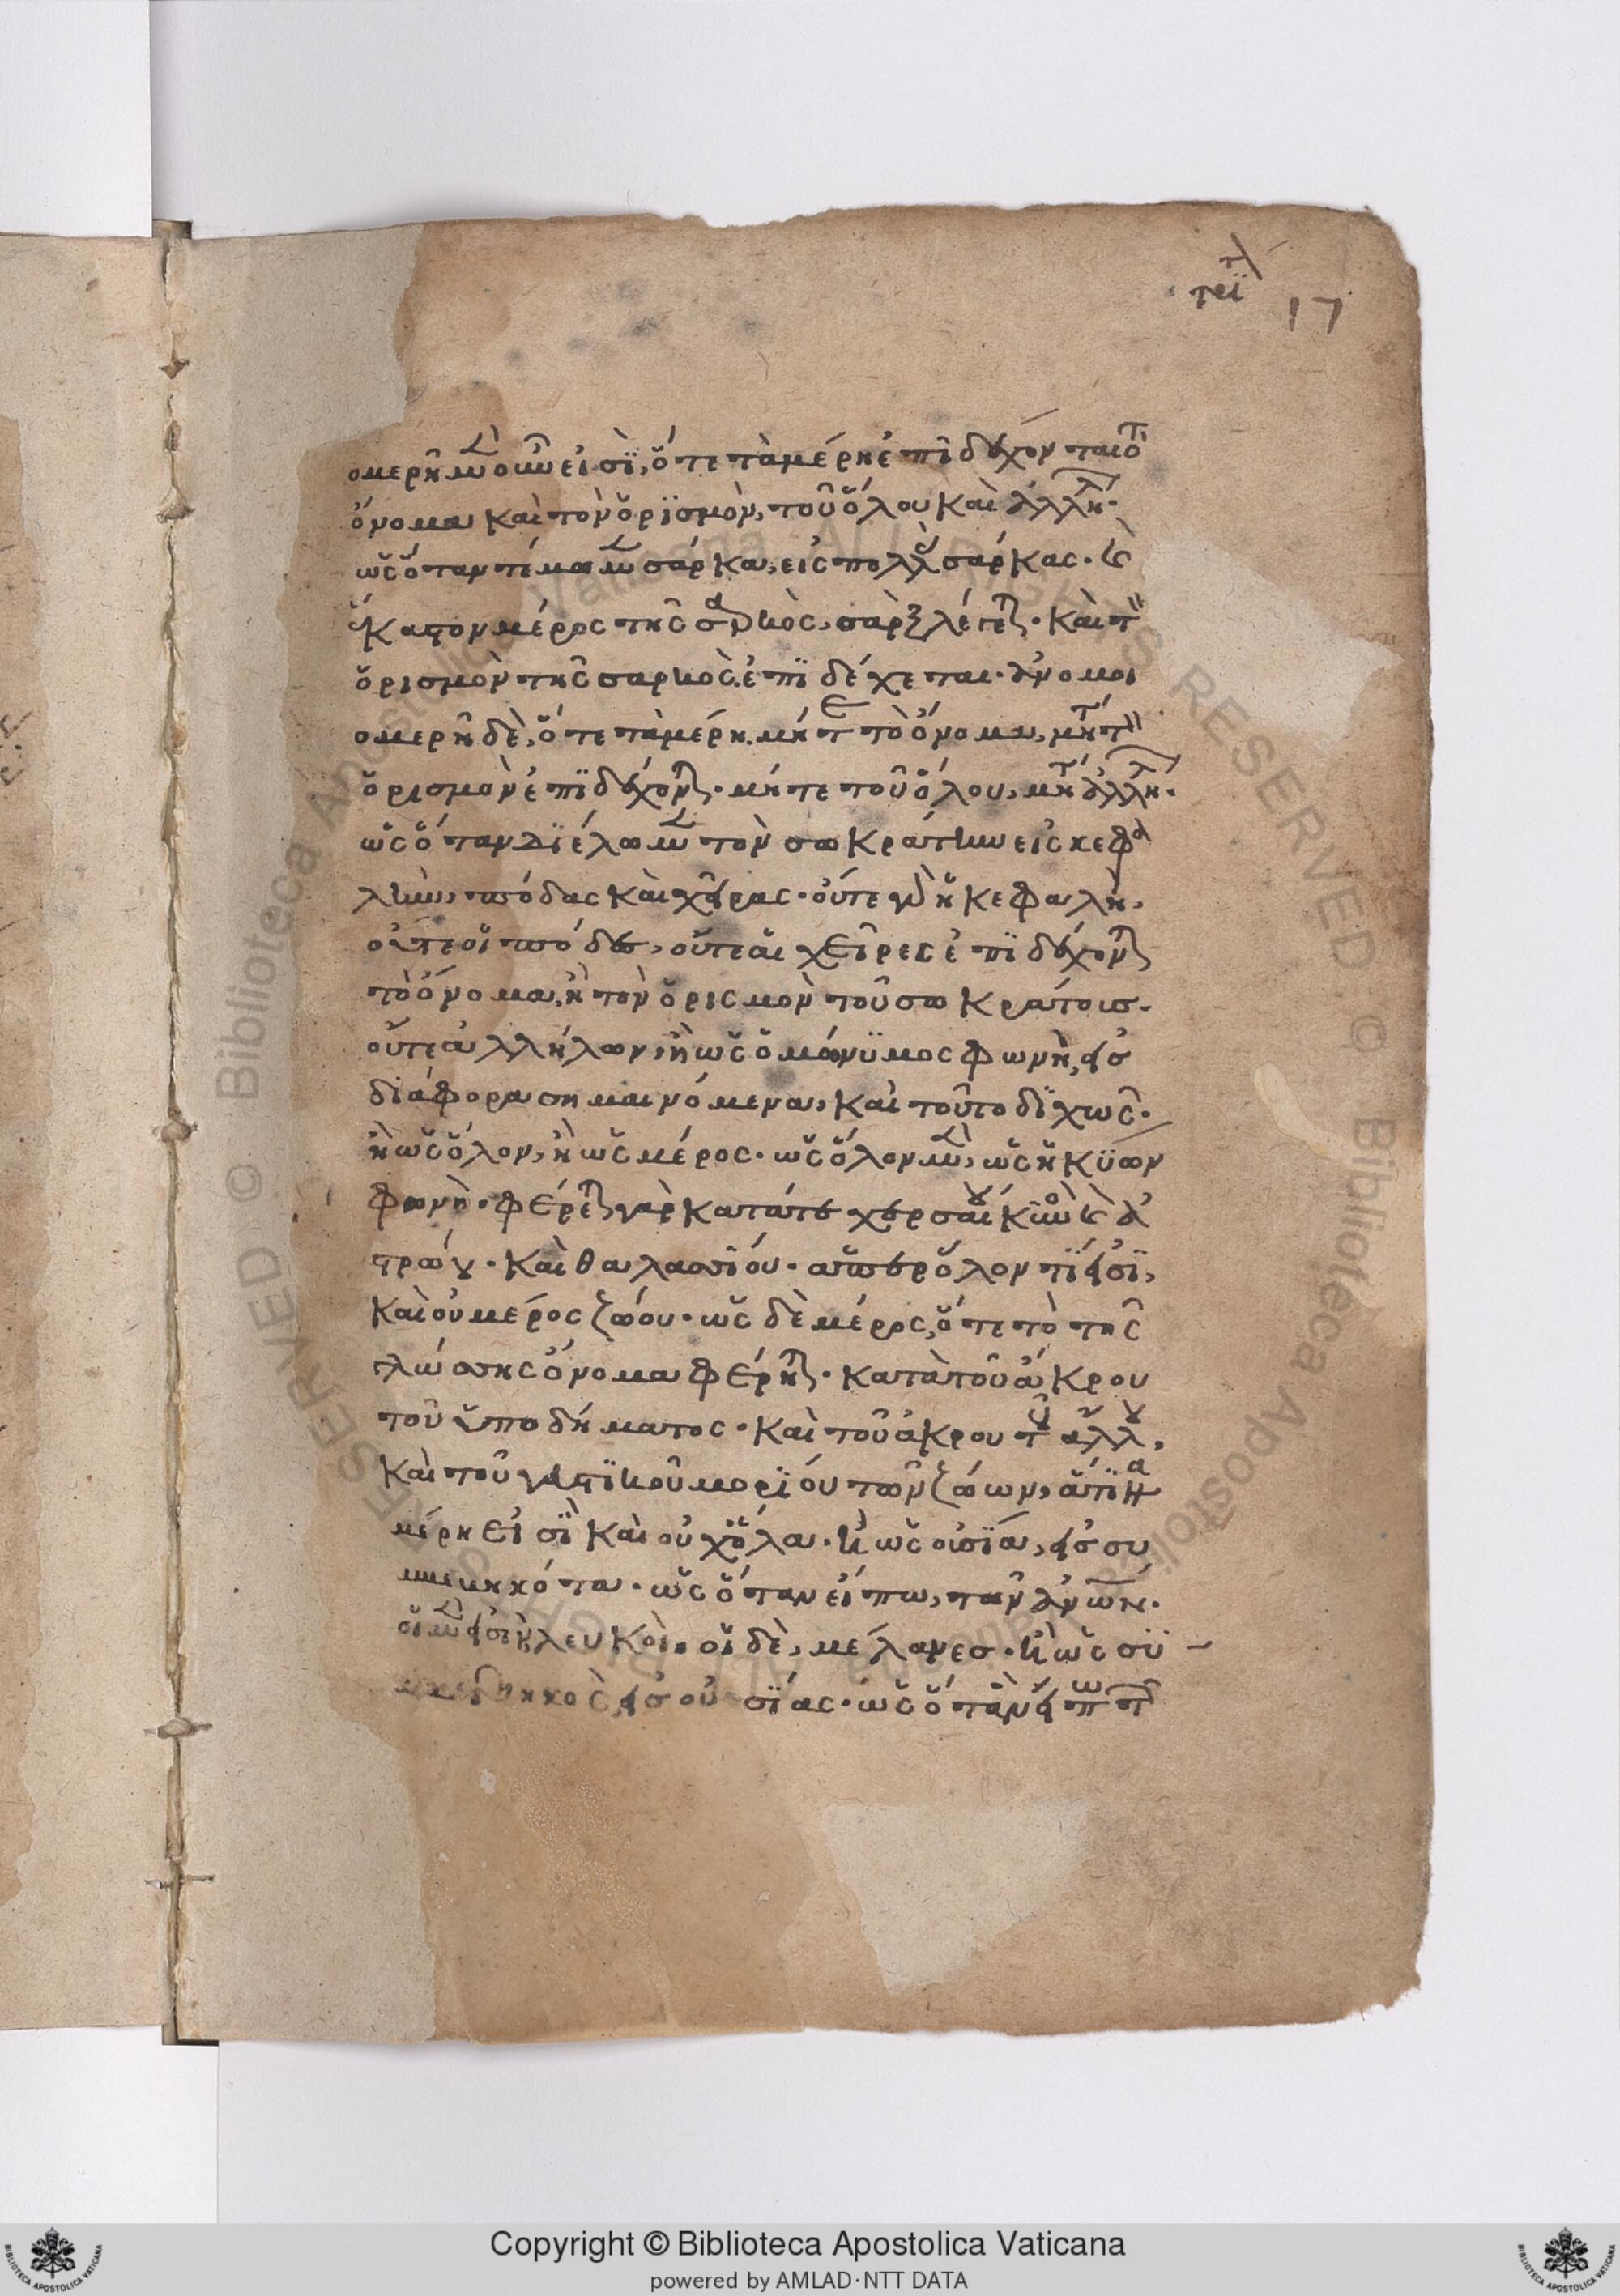 τέλ
17
ομερῆ μὲν οὖν εἰσὶ, ὅτε τὰ μέρη ἐπιδέχονται τὸ
ὄνομα καὶ τὸν ὁρισμὸν, τοῦ ὅλου καὶ ἀλλήλ·
ὡς ὅταν τέμωμεν σάρκα, εἰς πολλὰς σάρκας· καὶ
ἕκαστον μέρος τῆς σαρκὸς, σὰρξ λέγεται· καὶ τὸν
ὁρισμὸν τῆς σαρκὸς ἐπιδέχεται· ἀνομοι
ομερῆ δὲ, ὅτε τὰ μέρη, μήτε τὸ ὄνομα, μήτε τὸν
ὁρισμὸν ἐπιδέχονται· μήτε τοῦ ὅλου, μήτε ἀλλήλ·
ὡς ὅταν διέλωμεν τὸν σωκράτην εἰς κεφα
λὴν, πόδας καὶ χεῖρας· οὔτε γὰρ ἡ κεφαλὴ,
οὔτε οἱ πόδες, οὔτε αἱ χεῖρες ἐπιδέχονται
τὸ ὄνομα, ἢ τὸν ὁρισμὸν τοῦ σωκράτους·
οὔτε ἀλλήλων, ἢ ὡς ὁμώνυμος φωνὴ, εἰς
διάφορα σημαινόμενα, καὶ τοῦτο διχῶς·
ἢ ὡς ὅλον, ἢ ὡς μέρος· ὡς ὅλον μὲν, ὡς ἡ κύων
φωνὴ· φέρεται γὰρ κατά τε χερσαίου κυνὸς καὶ ἀ
στρώου· καὶ θαλασσίου· ἅπερ ὅλον τί εἰσι,
καὶ οὐ μέρος ζώου· ὡς δὲ μέρος, ὅτε τὸ τῆς
γλώσσης ὄνομα φέρηται· κατὰ τοῦ ἄκρου
τοῦ ὑποδήματος· καὶ τοῦ ἄκρου τοῦ αὐλοῦ,
καὶ τοῦ γευστικοῦ μορίου τῶν ζώων, ἅτινα
μέρη εἰσὶ καὶ οὐχ ὅλα· ἢ ὡς οὐσία, εἰς συ
μβεβηκότα· ὡς ὅταν εἴπω, τῶν ἀνων·
οἱ μὲν εἰσὶν λευκοὶ, οἱ δὲ, μέλανες· ἢ ὡς συ
μβεβηκὸς, εἰς οὐσίας· ὡς ὅταν εἴπω τῶν
Copyright © Biblioteca Apostolica Vaticana
powered by AMLAD·NTT DATA